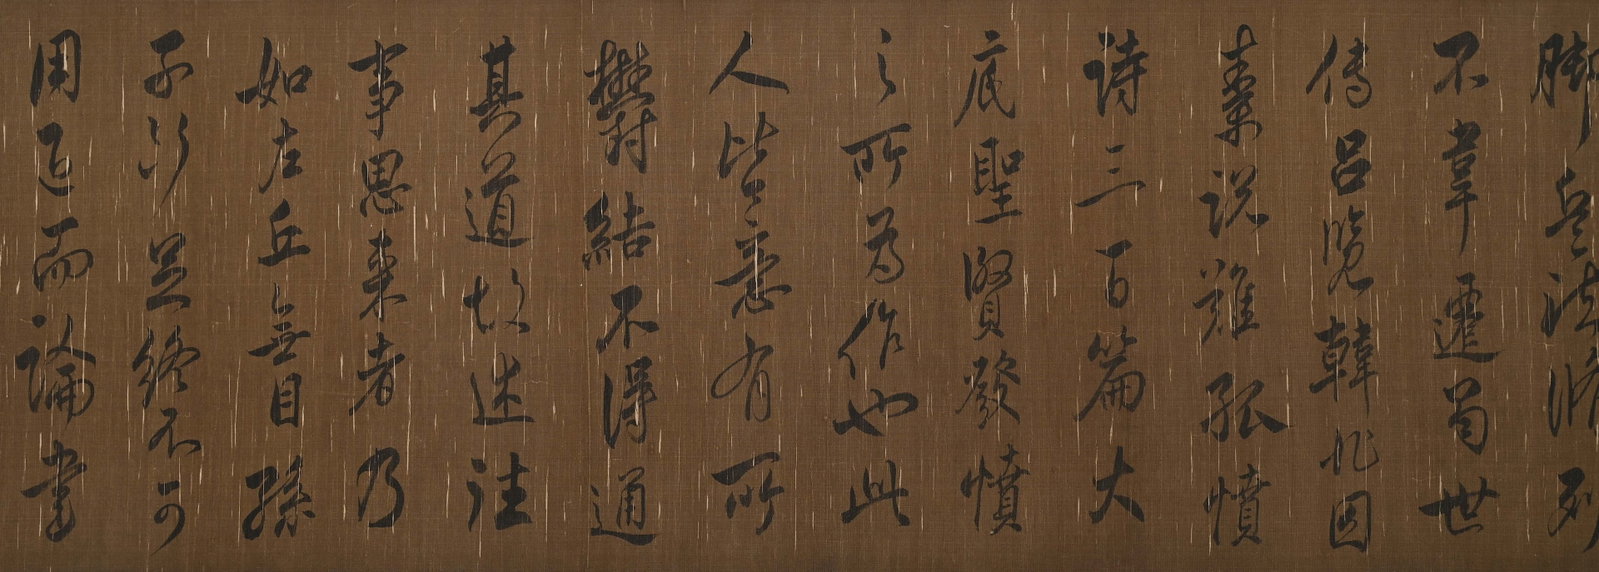 脚兵法脩列
不韋遷蜀世
傳呂覽韓非囚
秦說難孤憤
詩三百篇大
底聖賢發憤
之所為作也此
人皆意有所
欝結不得通
其道故述往
事思來者乃
如左丘無目孫
子斷足終不可
用退而論書